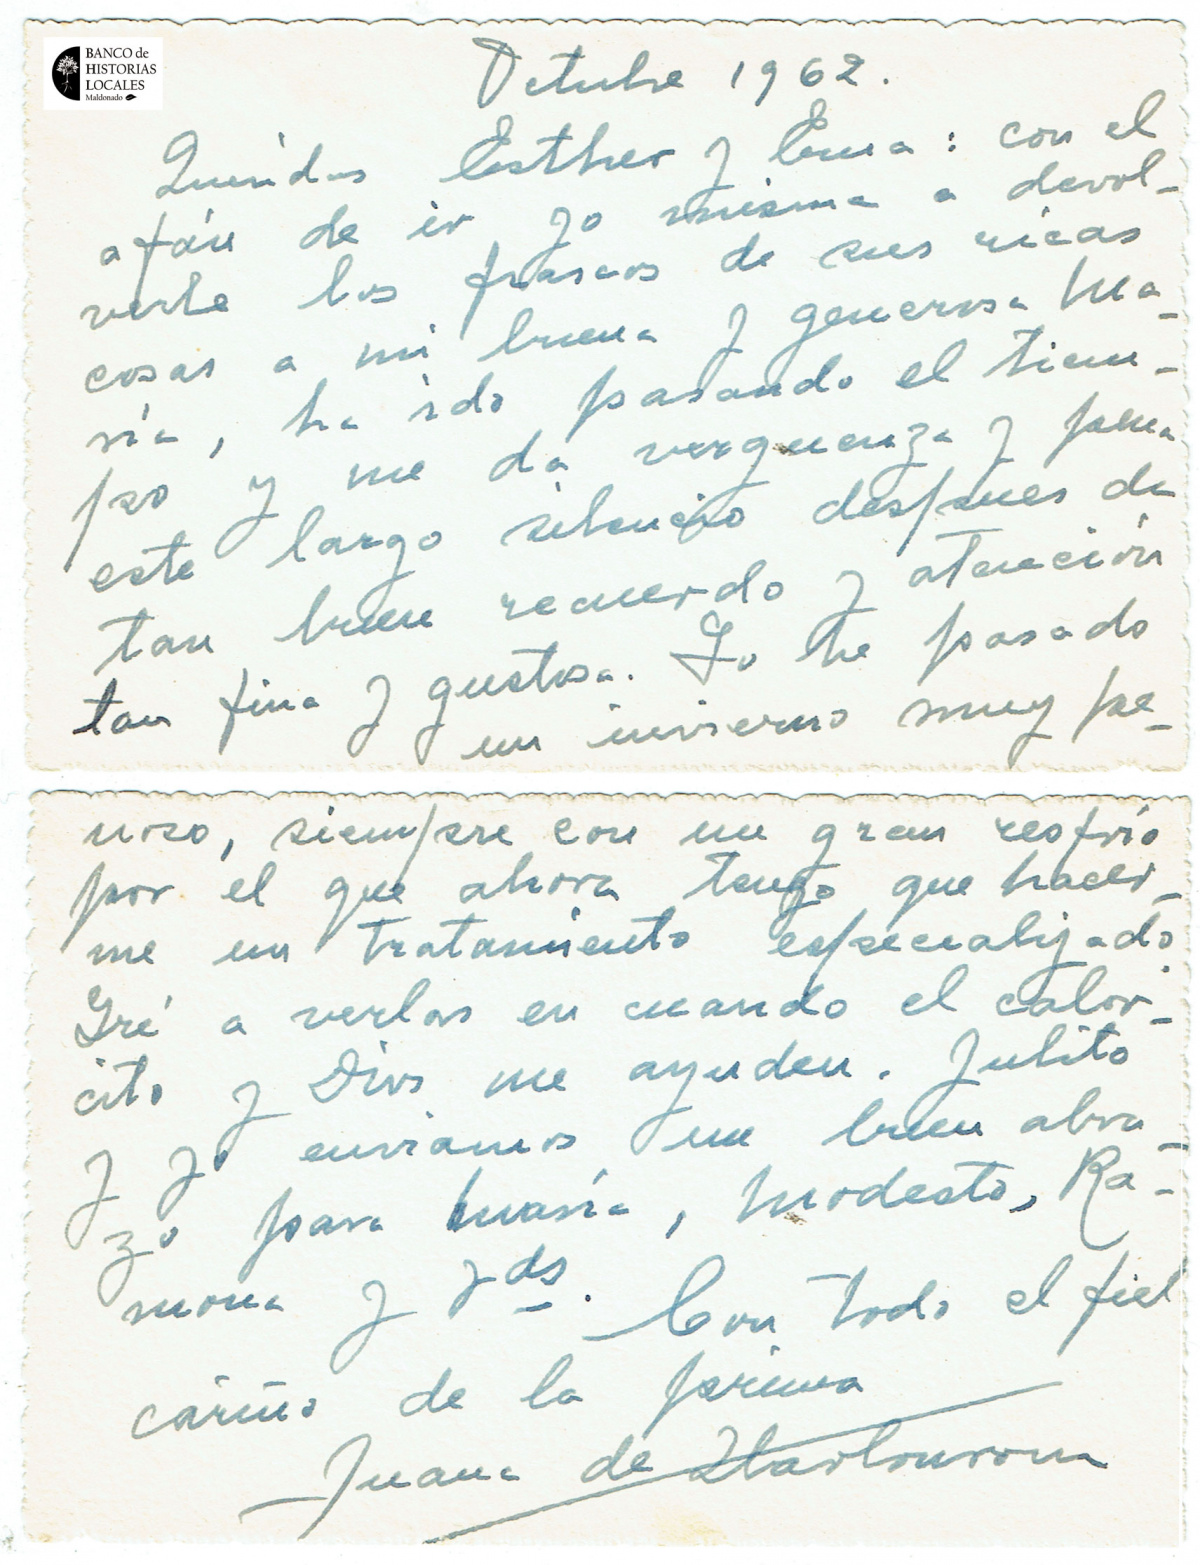 BANCO de
HISTORIAS
LOCALES
Maldonado
Octubre 1962.
Queridas Esther y Ema: con el
afán de ir yo misma a devol-
verle los frascos de sus ricas
cosas a mi buena y generosa Ma-
ría, ha ido pasando el tiem-
po y me da verguenza y pena
este largo silencio despues de
tan buen recuerdo y atención
tan fina y gustosa. Yo he pasado
un invierno muy pe-
noso, siempre con un gran resfrío
por el que ahora tengo que hacer-
me un tratamiento especializado.
Iré a verlas en cuando el calor-
cito y Dios me ayuden. Julito
y yo enviamos un buen abra-
zo para María, Modesto, Ra-
mona y Vds. Con todo el fiel
cariño de la prima
Juana de Ibarbourou